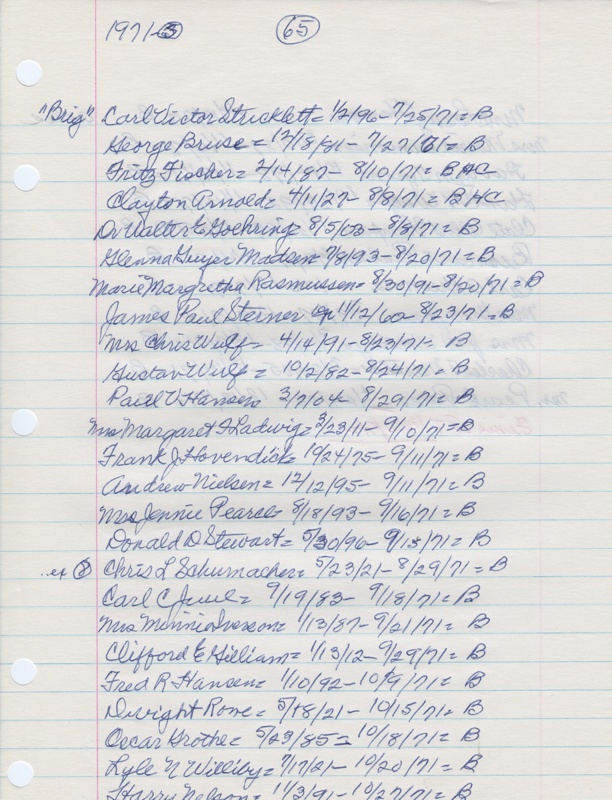 1971-3 65
"Brig" Carl Victor Strucklett= 1/2/96- 7/25/71= B
George Bruse = 12/18/81- 7/27/71= B
Fritz Fischer= 2/14/87- 8/10/71= B HC
Clayton Arnold= 4/11/27- 8/8/71= B HC
Dr Walter E Goehring= 8/5/03- 8/8/71= B
Glenna Guyer Madsen= 7/8/93-8/20/71= B
Marie Margretha Rasmussen= 8/30/91-8/20/71= B
James Paul Sterner 11/12/60- 8/23/71= B
Mrs Chris Wulf= 4/14/91-8/23/71= B
Gustav Wulf = 10/2/82- 8/24/71= B
Paul V Hansen 3/7/04- 8/29/71= B
Mrs Margaret F Ladwig= 3/23/11- 9/10/71=B
Frank J Hovendick= 10/24/75- 9/11/71= B
Andrew Nielsen= 12/12/95- 9/11/71= B
Mrs Jennie Pearce= 8/18/93- 9/16/71= B
Donald D Stewart= 5/30/96- 9/15/71= B
..ex 8 Chris L Schumacher= 5/23/21- 8/29/71= B
Carl C Juul= 9/19/83- 9/18/71= B
Mrs Minnie Iverson= 1/13/87- 9/21/71= B
Clifford E Gilliam= 1/13/12- 9/29/71= B
Fred R Hansen= 1/10/92- 10/9/71= B
Dwight Rowe= 5/18/21- 10/15/71= B
Oscar Grothe= 5/23/85= 10/18/71= B
Lyle N Williby= 7/17/21- 10/20/71= B
Harry Nelson= 11/3/91- 10/27/71= B